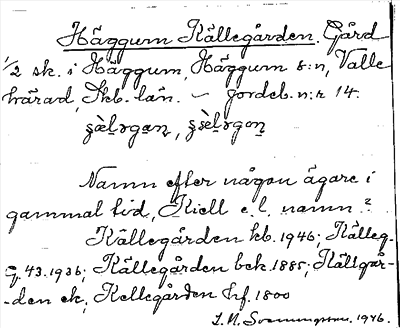 Häggum Källegården. Gård
1/2 sk. i Häggum, Häggum s:n, Valle
härad, Skb. län. – jordeb. n:r 14.
Namn efter någon ägare i
gammal tid, Kiell e. l. namn?
Källegården kb. 1946; Källeg.
G 43.1936; Källegården bek. 1885; Källgår-
-den ek, Kellegården hf. 1800
1946.